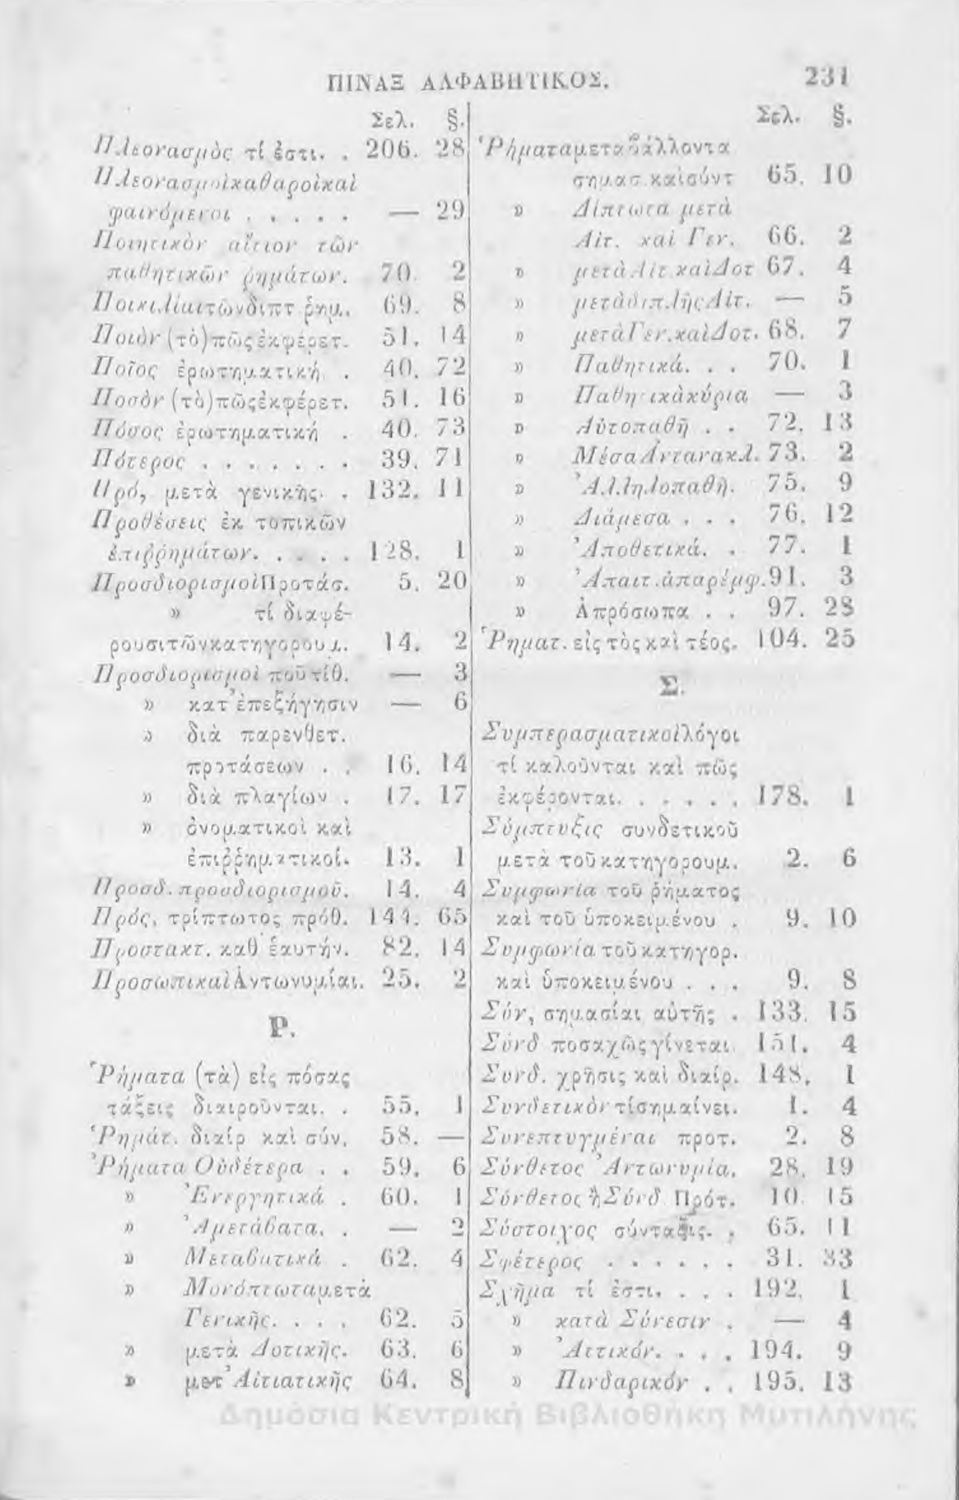 ΠΙΝΑΞ ΑΛΦΑΒΗΤΙΚΟΣ. 231
Σελ. §.
Πλεονασμὸς τί ἐστι. . 206. 28
Πλεονασμοὶ καθαροὶ καὶ
φαινόμενοι . . . . . — 29
Ποιητικὸν αἴτιον τῶν
παθητικῶν ῥημάτων. 70. 2
Ποικιλίαι τῶν διπτ ῥημ.. 69. 8
Ποιὸν (τὸ) πῶς ἐκφέρετ. 51. 14
Ποῖος ἐρωτηματική . 40. 72
Ποσὸν (τὸ) πῶς ἐκφέρετ. 51. 16
Πόσος ἐρωτηματική . 40. 73
Πότερος . . . . . . . 39. 71
Πρό, μετὰ γενικῆς. . 132. 11
Προθέσεις ἐκ τοπικῶν
ἐπιῤῥημάτων. . . . . 128. 1
Προσδιορισμοὶ Προτάσ. 5. 20
» τί διαφέ-
ρουσι τῶν κατηγορουμ. 14. 2
Προσδιορισμοὶ ποῦ τίθ. — 3
» κατ᾽ ἐπεξήγησιν — 6
» διὰ παρενθετ.
προτάσεων . . 16. 14
» διὰ πλαγίων . 17. 17
» ὀνοματικοὶ καὶ
ἐπιῤῥηματικοί. 13. 1
Προσδ. προσδιορισμοῦ. 14. 4
Πρός, τρίπτωτος πρόθ. 144. 65
Προστακτ. καθ᾽ ἑαυτήν. 82. 14
Προσωπικαὶ Ἀντωνυμίαι. 25. 2
Ρ.
Ῥήματα (τὰ) εἰς πόσας
τάξεις διαιροῦνται. . 55. 1
Ῥημάτ. διαίρ καὶ σύν. 58. —
Ῥήματα Οὐδέτερα . . 59. 6
» Ἐνεργητικά . 60. 1
» Ἀμετάβατα. . — 2
» Μεταβατικά . 62. 4
» Μονόπτωτα μετὰ
Γενικῆς. . . . 62. 5
» μετὰ Δοτικῆς. 63. 6
» μετ᾽ Αἰτιατικῆς 64. 8
Σελ. §.
Ῥήματα μεταβάλλοντα
σημασ. καὶ σύντ 65. 10
» Δίπτωτα μετὰ
Αἰτ. καὶ Γεν. 66. 2
» μετὰ Αἰτ καὶ Δοτ 67. 4
» μετὰ διπλῆς Αἰτ. — 5
» μετὰ Γεν. καὶ Δοτ. 68. 7
» Παθητικά. . . 70. 1
» Παθητικὰ κύρια — 3
» Αὐτοπαθῆ . . 72. 13
» Μέσα Ἀντανακλ. 73. 2
» Ἀλληλοπαθῆ. 75. 9
» Διάμεσα . . . 76. 12
» Ἀποθετικά. . 77. 1
» Ἀπαιτ. ἀπαρέμφ. 91. 3
» Ἀπρόσωπα . . 97. 28
Ῥηματ. εἰς τὸς καὶ τέος. 104. 25
Σ.
Συμπερασματικοὶ λόγοι
τί καλοῦνται καὶ πῶς
ἐκφέρονται. . . . . . 178. 1
Σύμπτυξις συνδετικοῦ
μετὰ τοῦ κατηγορουμ. 2. 6
Συμφωνία τοῦ ῥήματος
καὶ τοῦ ὑποκειμένου . 9. 10
Συμφωνία τοῦ κατηγορ.
καὶ ὑποκειμένου . . . 9. 8
Σύν, σημασίαι αὐτῆς . 133. 15
Σύνδ ποσαχῶς γίνεται 151. 4
Συνδ. χρῆσις καὶ διαίρ. 148. 1
Συνδετικὸν τί σημαίνει. 1. 4
Συνεπτυγμέναι προτ. 2. 8
Σύνθετος Ἀντωνυμία. 28. 19
Σύνθετος ἢ Σύνδ Πρότ. 10 15
Σύστοιχος σύνταξις. . 65. 11
Σφέτερος . . . . . . 31. 83
Σχῆμα τί ἐστι. . . . 192. 1
» κατὰ Σύνεσιν . — 4
» Ἀττικόν. . . . 194. 9
» Πινδαρικόν . . 195. 13
Δημόσια Κεντρική Βιβλιοθήκη Μυτιλήνης